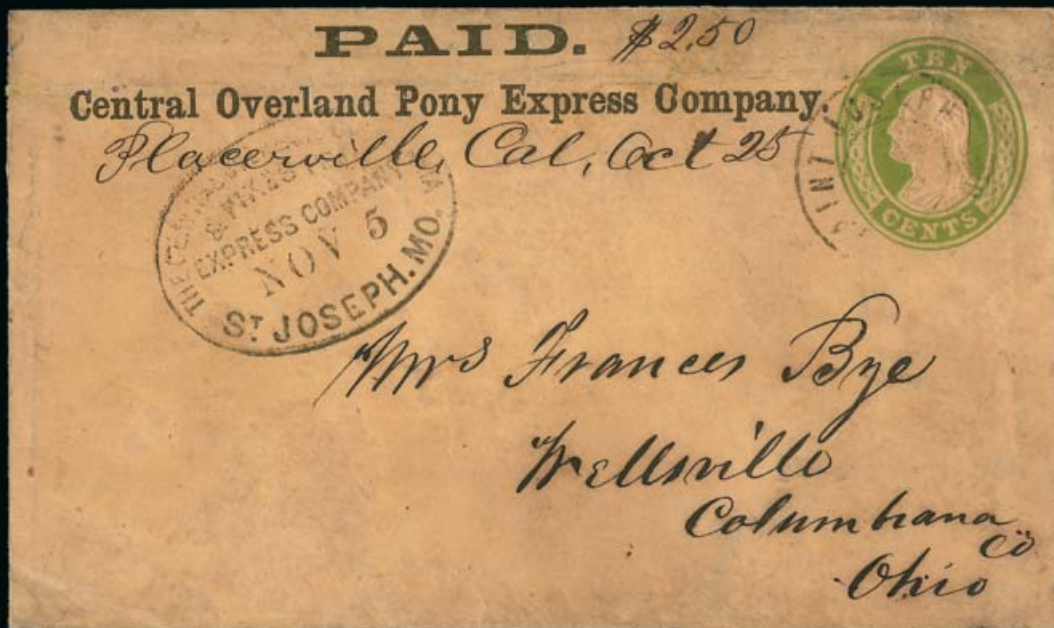 PAID. $2.50
Central Overland Pony Express Company.
Placerville, Cal, Oct 25
TEN
CENTS
THE CENTRAL
& PIKE'S
EXPRESS COMPANY
NOV 5
ST JOSEPH. MO.
Mrs Frances Bye
Wellsville
Columbiana
Co
Ohio